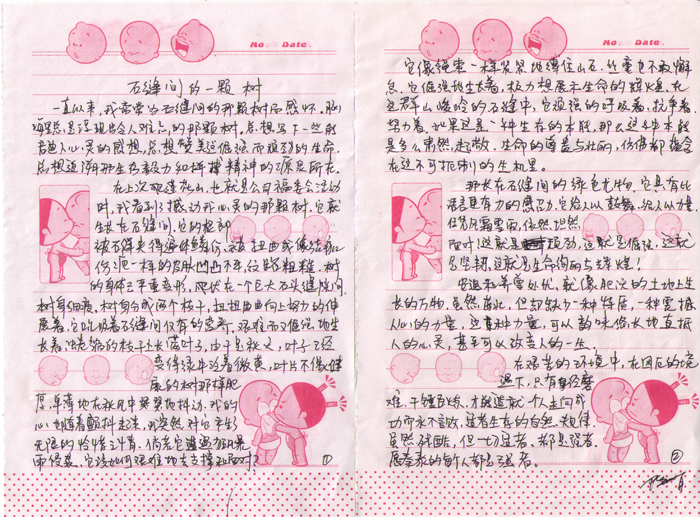 No. Date.
石缝间的一颗树
一直以来,我常常为石缝间的那颗树而感怀,脑
海总是浮现出令人难忘的那颗树,总想写下一些能
心灵的感想,总想赞美这倔强而顽强的生命
总想追溯那生存毅力和拼搏精神的源泉所在。
在上次爬莲花山,也就是公司福委会活动
时,我看到了撼动我心灵的那颗树。它就
生长在石缝间,它的根部
被石头夹得遍体鳞伤,扭曲成像
一样的皮肤凹凸不平,纹路粗糙。树
的身体已严重变形,爬伏在一个巨大石头缝隙间
树身细瘦,树身分成两个枝干,扭扭曲曲向上努力的伸
展着,它吮吸着石缝间仅有的营养,艰难而倔强地生
长着,的枝干上长着叶子,由于是秋天,叶子已经
变得绿中泛着微黄,叶片不像健
康的树那样肥
厚,单薄地在秋风中瑟瑟地抖动,我的
心也随着颤抖起来,我突然对它产生了
无限的怜惜之情。倘若它遭遇狂风暴
雨侵袭,它该如何艰难地去支撑和面对?
①
No. Date.
它像绳索一样紧紧地缚住山石,丝毫也不敢懈
怠,它倔强地生长着,极力想展示生命的辉煌。在
这群山峻岭的石缝中,它顽强的呼吸着,抗争着
努力着。如果这是一种生存的本能,那么这种本能
是多么勇敢,超越,生命的尊严与壮丽,仿佛都蕴含
在这不可扼制的生机里。
那长在石缝间的绿色尤物,它具有比
语言更有力的感召,它给人以鼓舞,给人以力量
任凭风霜雪雨,依然坦然
面对!这就是顽强,这就是倔强,这就
是坚韧,这就是生命绚丽与辉煌!
安逸和养尊处优,就像肥沃的土地上生
长的万物,虽然茁壮,但却缺少一种特质,一种震撼
人心的力量,这种力量,可以韵味悠长地直抵
人的心灵,甚至可以改变人的一生。
在艰苦的环境中,在困厄的境
遇下,只有经磨
难,千锤百炼,才能造就一个人走向成
功而永不言败,适者生存的自然规律
虽然残酷,但一切适者,都是强者。
愿奋发的每个人都是强者。
②